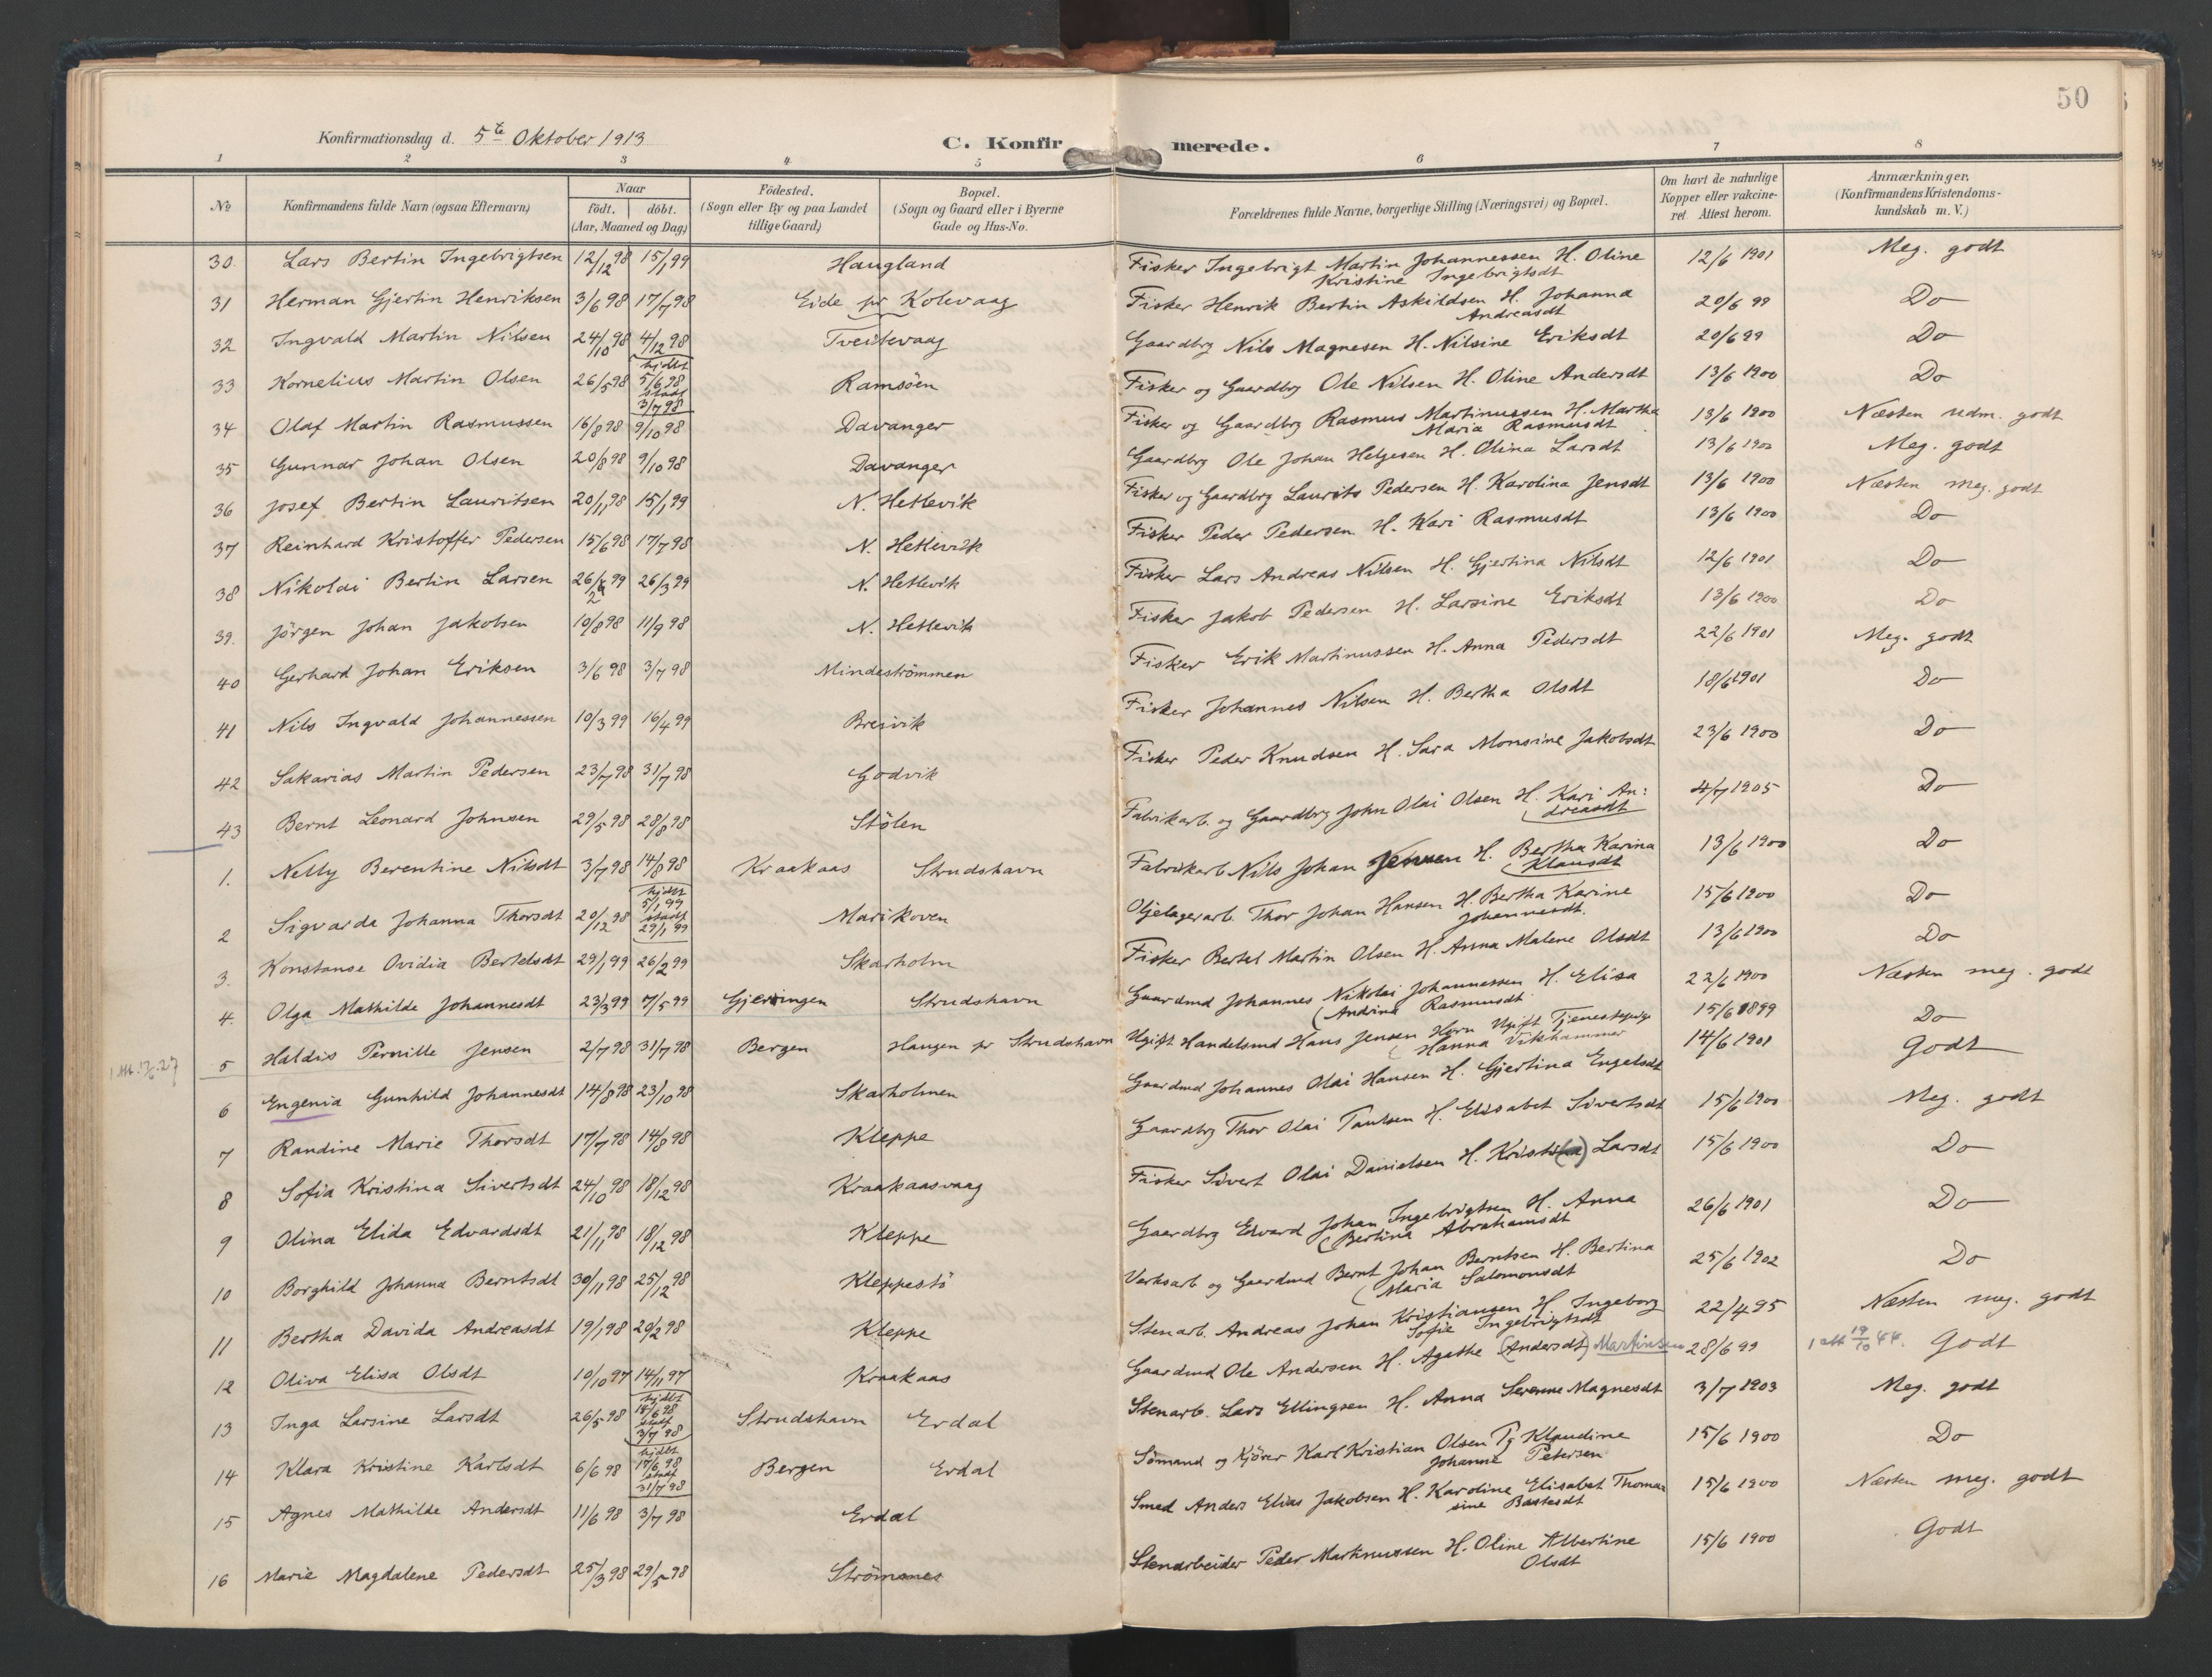 50
Konfirmationsdag d. 5te Oktober 1913
C. Konfirmerede.
1 2 3 4 5 6 7 8
No Konfirmandens fulde Navn (ogsaa Efternavn) Naar födt. döbt. (Aar, Maaned og Dag) Födested. (Sogn eller By og paa Landet tillige Gaard) Bopæl. (Sogn og Gaard eller i Byerne Gade og Hus-No. Forældrenes fulde Navne, borgerlige Stilling (Næringsvei) og Bopæl. Om havt de naturlige Kopper eller vakcineret Attest herom. Anmærkninger. (Konfirmandens Kristendomskundskab m. V.)
30. Lars Bertin Ingebrigtsen 12/12 98 15/1 99 Haugland Fisker Ingebrigt Martin Johannessen H. Oline Kristine Ingebrigtsdt 12/6 1901 Meg. godt
31 Herman Gjertin Henriksen 3/6 98 17/7 98 Eide pr Kolevaag Fisker Henrik Bertin Askildsen H. Johanna Andreasdt 20/6 99 Do
32 Ingvald Martin Nilsen 24/10 98 4/12 98 Tveitevaag Gaardbrg Nils Magnesen H. Nilsine Eriksdt 20/6 99 Do
33 Kornelius Martin Olsen 26/5 98 hjdbt 5/6 98 stadf 3/7 98 Ramsöen Fisker og Gaardbrg Ole Nilsen H. Oline Andersdt 13/6 1900 Do
34 Olaf Martin Rasmussen 16/8 98 9/10 98 Davanger Fisker og Gaardbrg Rasmus Martinussen H. Martha Maria Rasmusdt 13/6 1900 Næsten udm. godt
35 Gunnar Johan Olsen 20/8 98 9/10 98 Davanger Gaardbrg Ole Johan Helgesen H. Olina Larsdt 13/6 1900 Meg. godt
36 Josef Bertin Lauritsen 20/11 98 15/1 99 N. Hetlevik Fisker og Gaardbrg Laurits Pedersen H. Karolina Jensdt 13/6 1900 Næsten meg. godt
37 Reinhard Kristoffer Pedersen 15/6 98 17/7 98 N. Hetlevik Fisker Peder Pedersen H. Kari Rasmusdt 13/6 1900 Do
38 Nikolai Bertin Larsen 26/2 99 26/3 99 N. Hetlevik Fisker Lars Andreas Nilsen H. Gjertina Nilsdt 12/6 1901 Do
39. Jörgen Johan Jakobsen 10/8 98 11/9 98 N. Hetlevik Fisker Jakob Pedersen H. Larsine Eriksdt 13/6 1900 Do
40 Gerhard Johan Eriksen 3/6 98 3/7 98 Mindeströmmen Fisker Erik Martinussen H. Anna Pedersdt 22/6 1901 Meg. godt
41 Nils Ingvald Johannessen 10/3 99 16/4 99 Breivik Fisker Johannes Nilsen H. Bertha Olsdt 18/6 1901 Do
42 Sakarias Martin Pedersen 23/7 98 31/7 98 Godvik Fisker Peder Knudsen H. Sara Monsine Jakobsdt 23/6 1900 Do
43 Bernt Leonard Johnsen 29/5 98 28/8 98 Stölen Fabrikarb. og Gaardbrg John Olai Olsen H. Kari An: dreasdt 4/7 1905 Do
1. Nelly Berentine Nilsdt 3/7 98 14/8 98 Kraakaas Strudshavn Fabrikarb Nils Johan Jensen H. Bertha Karina Klausdt 13/6 1900 Do
2 Sigvarda Johanna Thorsdt 20/12 98 hjdbt 5/1 99 stadf 29/1 99 Marikoven Oljelagerarb. Thor Johan Hansen H. Bertha Karine Johannesdt. 15/6 1200 Do
3. Konstanse Ovidia Bertelsdt 29/1 99 26/2 99 Skarholm Fisker Bertel Martin Olsen H. Anna Malene Olsdt 13/6 1900 Do
4. Olga Mathilde Johannesdt 23/3 99 7/5 99 Gjerringen Strudshavn Gaardmd Johannes Nikolai Johannessen H. Elisa (Andrine Rasmusdt 22/6 1900 Næsten meg. godt
5 Haldis Pernille Jensen 2/7 98 31/7 98 Bergen Haugen pr Strudshavn Ugift Handelsmd Hans Jensen Horn Ugift Tjenestepige (Hanna Vikhammer 15/6 1899 Do
6 Engenia Gunhild Johannesdt 14/8 98 23/10 98 Skarholmen Gaardmd Johannes Olai Hansen H. Gjertina Engelsdt 14/6 1901 Godt
7 Randine Marie Thorsdt 17/7 98 14/8 98 Kleppe Gaardbrg Thor Olai Paulsen H. Elisabet Sivertsdt 15/6 1900 Meg. godt
8 Sofia Kristina Sivertsdt 24/10 98 18/12 98 Kraakaasvaag Fisker Sivert Olai Danielsen H. Larsdt 15/6 1900 Do
9 Olina Elida Edvardsdt 21/11 98 18/12 98 Kleppe Gaardbrg Edvard Johan Ingebrigtsen H. Anna (Bertina Abrahamsdt 26/6 1901 Do
10 Borghild Johanna Berntsdt 30/11 98 25/12 98 Kleppestö Verksarb og Gaardmd Bernt Johan Berntsen H. Bertina (Maria Salomonsdt 25/6 1902 Do
11 Bertha Davida Andreasdt 19/1 98 20/2 98 Kleppe Stenarb. Andreas Johan Kristiansen H. Ingeborg Sofie Ingebrigtsdt 22/4 95 Næsten meg. godt
12 Oliva Elisa Olsdt 10/10 97 14/11 97 Kraakaas Gaardmd Ole Andersen H. Agathe (Andersdt) Martinsen 28/6 99 1 att 19/10 44. Godt
13 Inga Larsine Larsdt 26/5 98 hjdbt stadf 3/7 98 Strudshavn Erdal Stenarb. Lars Ellingsen H. Anna Severine Magnesdt 3/7 1903 Meg. godt
14 Klara Kristine Karlsdt 6/6 98 hjdbt 17/6 98 stadf 31/7 98 Bergen Erdal Sömand og Kjörer Karl Kristian Olsen Pg Klaudine Johanne Petersen 15/6 1900 Do
15 Agnes Mathilde Andersdt 11/6 98 3/7 98 Erdal Smed Anders Elias Jakobsen H. Karoline Elisabet Thoma= sine Bastesdt 15/6 1900 Næsten meg. godt
16 Marie Magdalene Pedersdt 25/3 98 29/5 98 Strömsnes Stenarbeider Peder Martinussen H. Oline Albertine Olsdt 15/6 1900 Godt